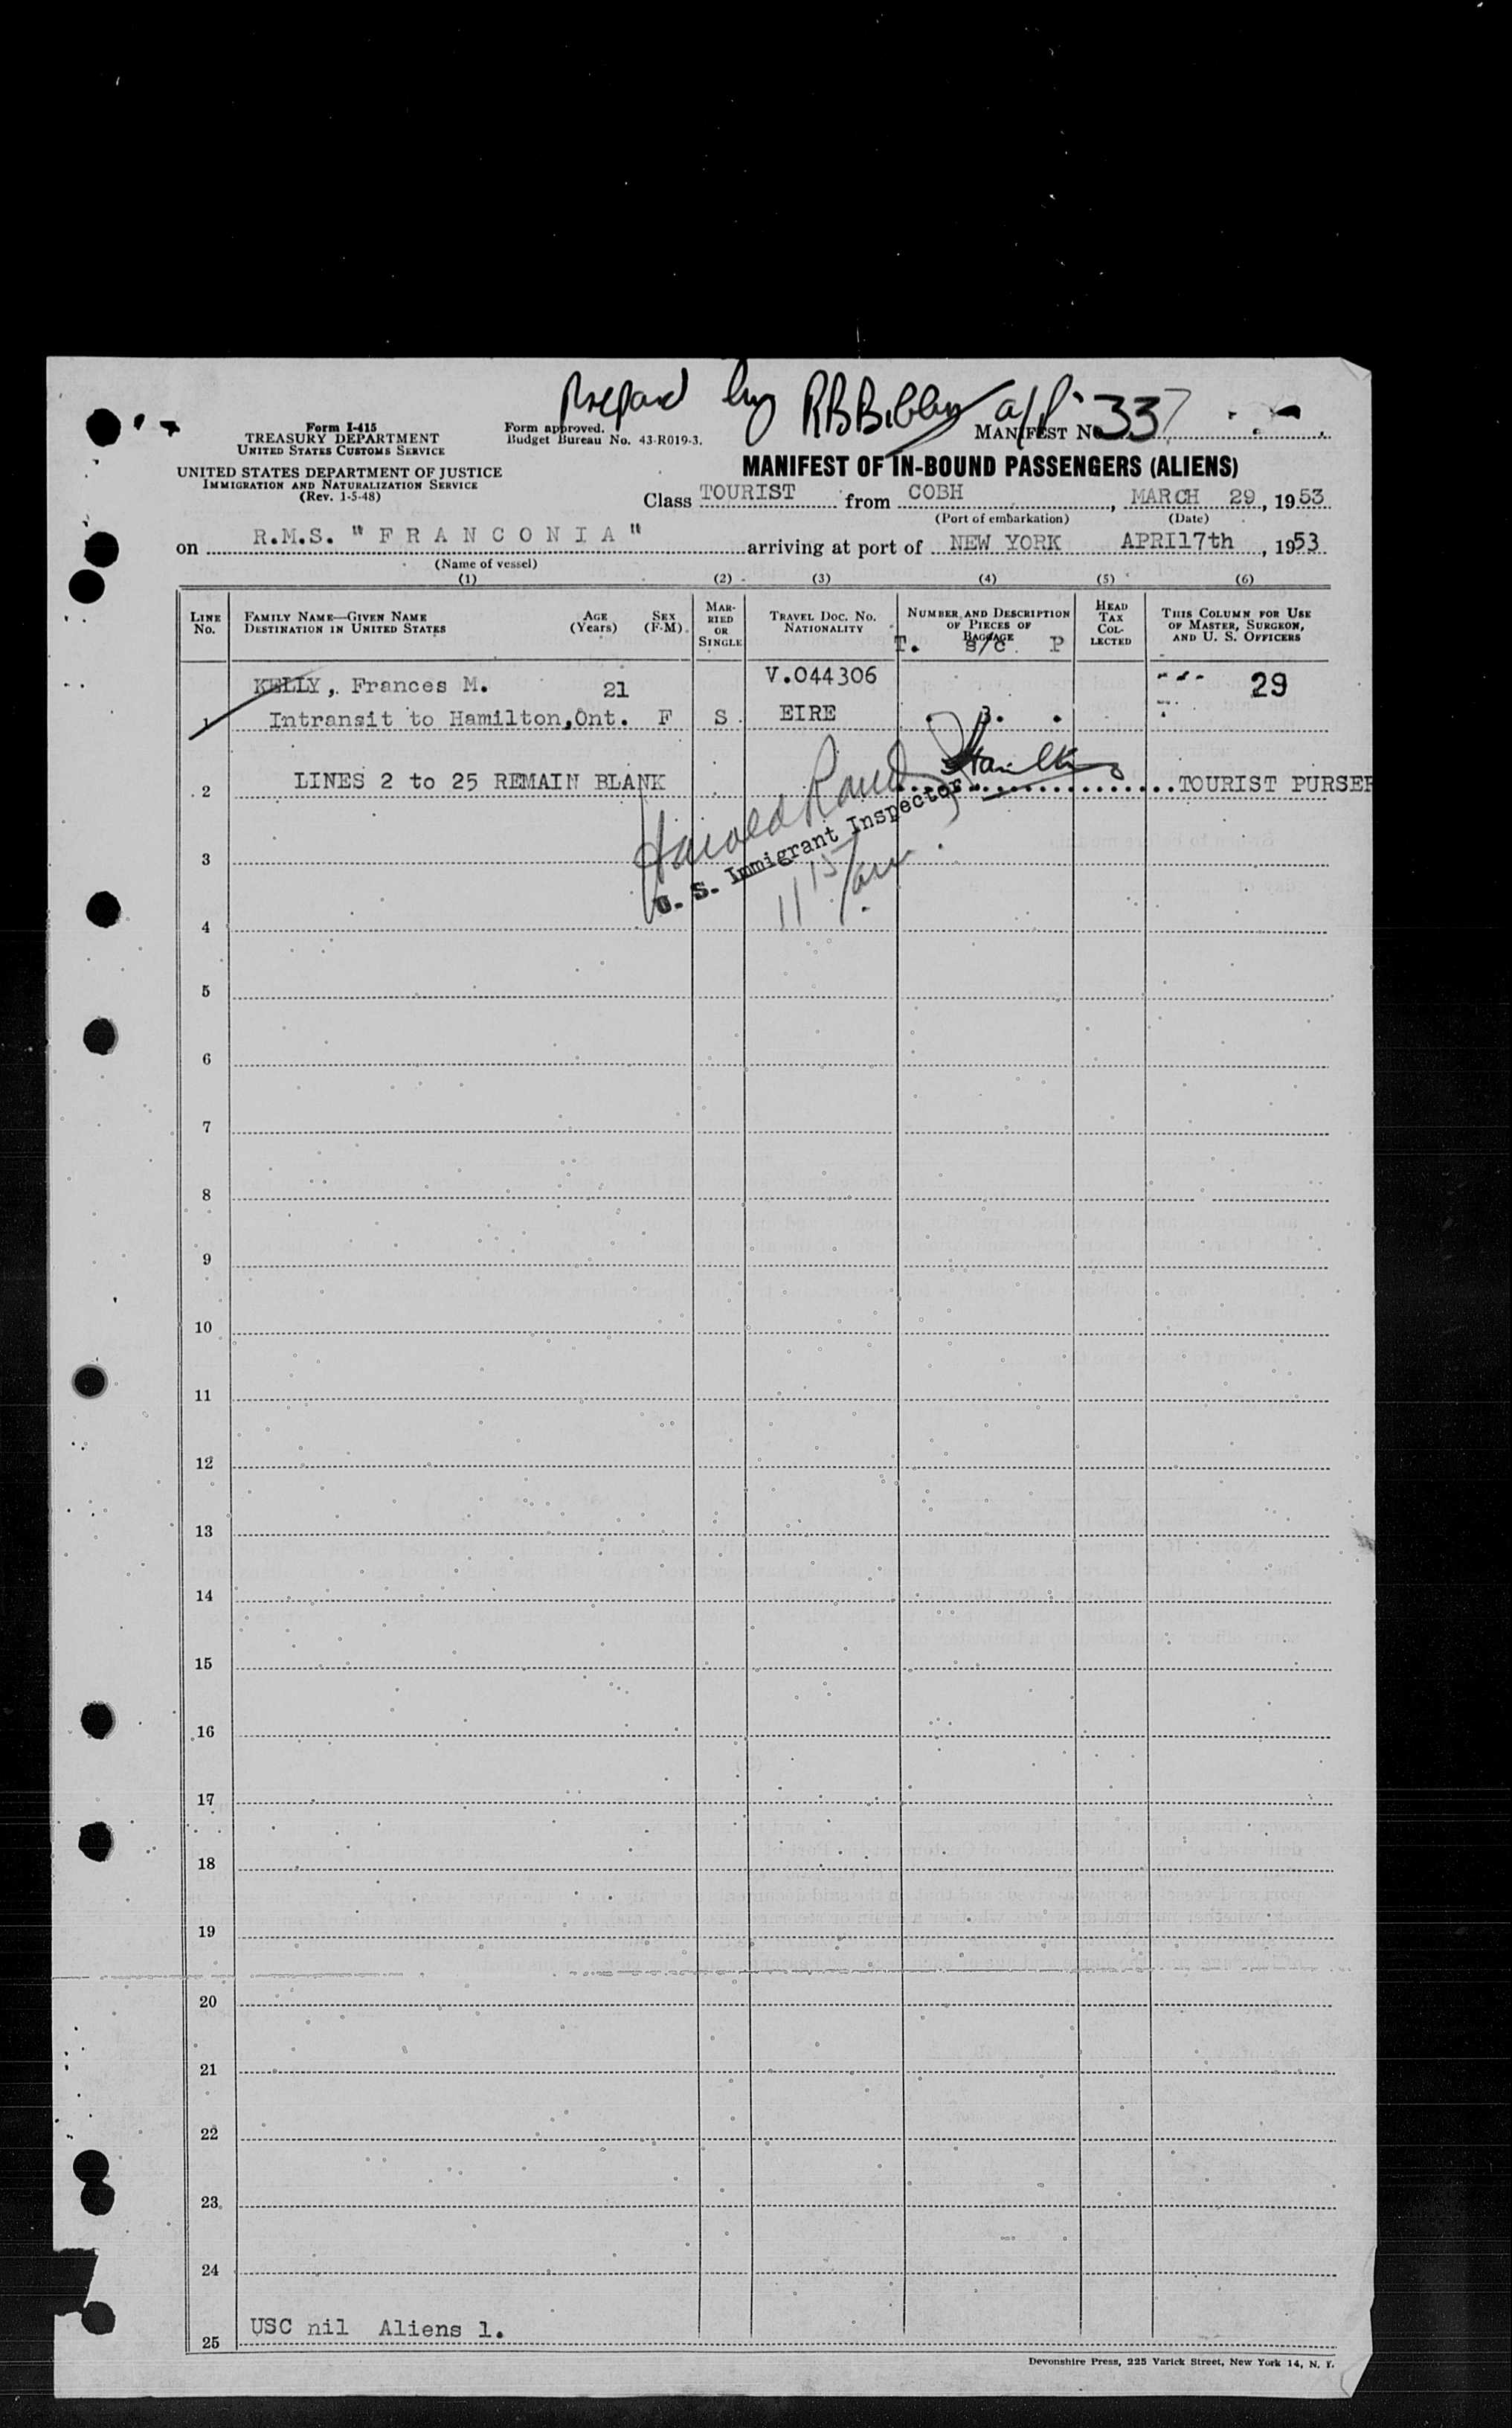 Prepared by RBBibby a/p. 337
Form I-415
TREASURY DEPARTMENT
UNITED STATES CUSTOMS SERVICE
UNITED STATES DEPARTMENT OF JUSTICE
IMMIGRATION AND NATURALIZATION SERVICE
(Rev. 1-5-48)
Form approved.
Budget Bureau No. 43-R019-3.
MANIFEST No.
MANIFEST OF IN-BOUND PASSENGERS (ALIENS)
Class TOURIST from COBH, MARCH 29, 1953
(Port of embarkation) (Date)
on R.M.S. "FRANCONIA" arriving at port of NEW YORK APRIl7th, 1953
(Name of vessel)
(1) (2) (3) (4) (5) (6)
LINE No.
FAMILY NAME—GIVEN NAME
DESTINATION IN UNITED STATES
AGE (Years)
SEX (F-M)
MARRIED OR SINGLE
TRAVEL DOC. NO. NATIONALITY
NUMBER AND DESCRIPTION OF PIECES OF BAGGAGE
T. s/c. P
HEAD TAX COLLECTED
THIS COLUMN FOR USE OF MASTER, SURGEON, AND U. S. OFFICERS
KELLY, Frances M. 21 V.044306 29
1 Intransit to Hamilton,Ont. F S EIRE . 3. .
2 LINES 2 to 25 REMAIN BLANK ....................TOURIST PURSER
Harold Rand
U. S. Immigrant Inspector
11 15/am.
3
4
5
6
7
8
9
10
11
12
13
14
15
16
17
18
19
20
21
22
23
24
25 USC nil Aliens 1.
Devonshire Press, 225 Varick Street, New York 14, N. Y.